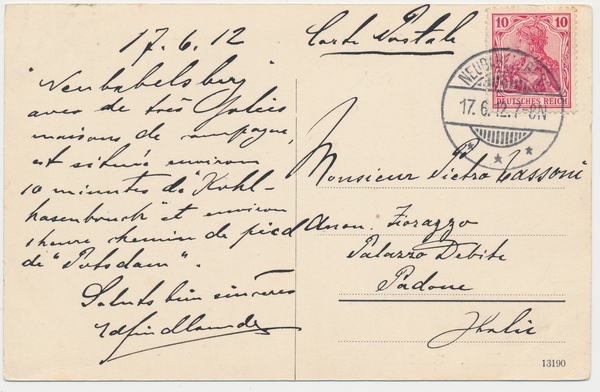 17.6.12
"Neubabelsberg"
avec de très Jolies
maisons de campagne,
est située environ
10 minutes de "Kohl-
hasenbruck" et environ
1 heure chemin de pied
de "Potsdam".
Saluts bien sincères
Carte Postale
10 10
DEUTSCHES REICH
17.6.12.7-8N
Monsieur Pietro Tassoni
Anon. Fiorazzo
Palazzo Debite
Padoue
Italie
13190